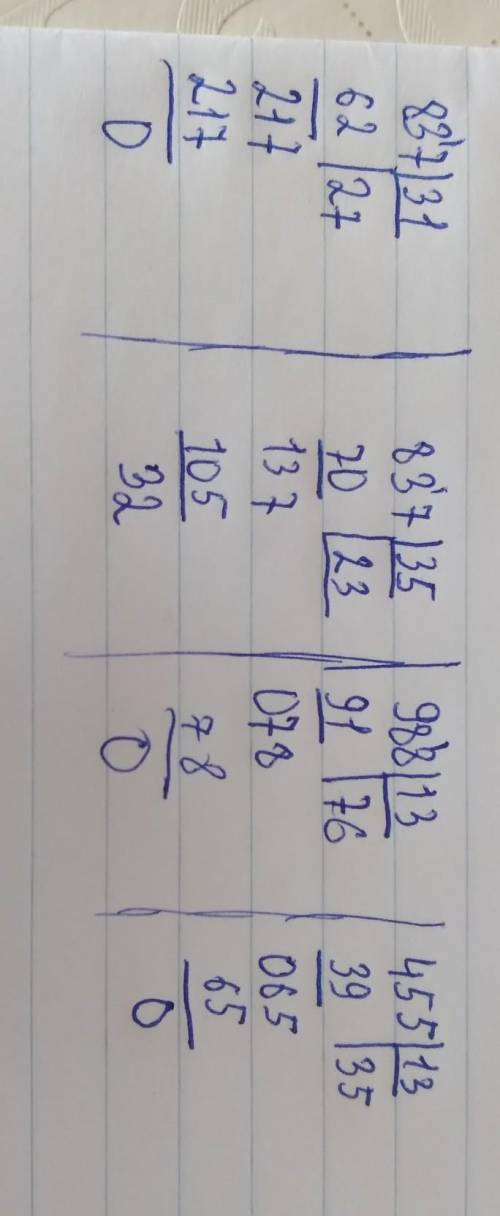 837 31
62 27
217
217
0
837 35
70 23
137
105
32
988 13
91 76
078
78
0
455 13
39 35
065
65
0